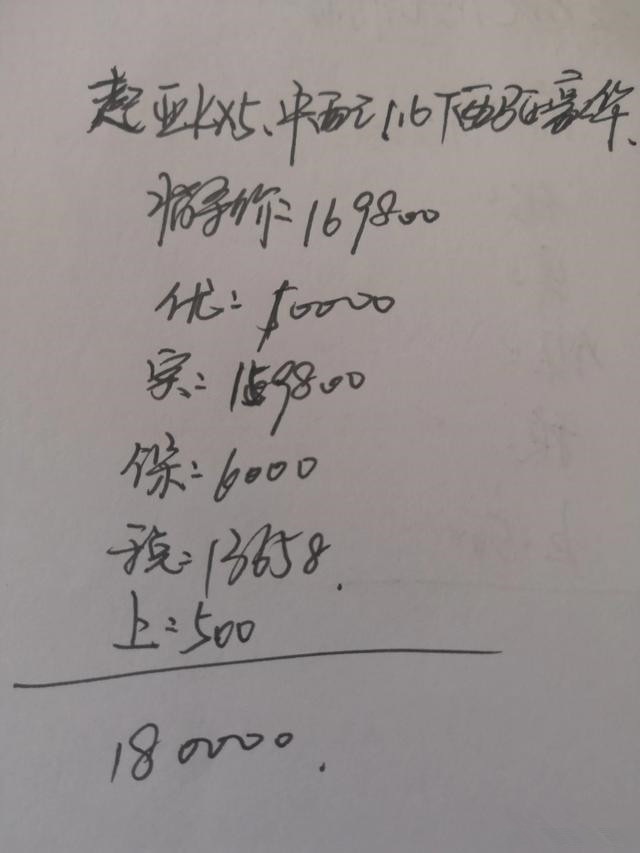 起亚KX5、中配1.6T两驱豪华、
指导价: 169800
优: 10000
实: 159800
保: 6000
税: 13658.
上: 500
180000.